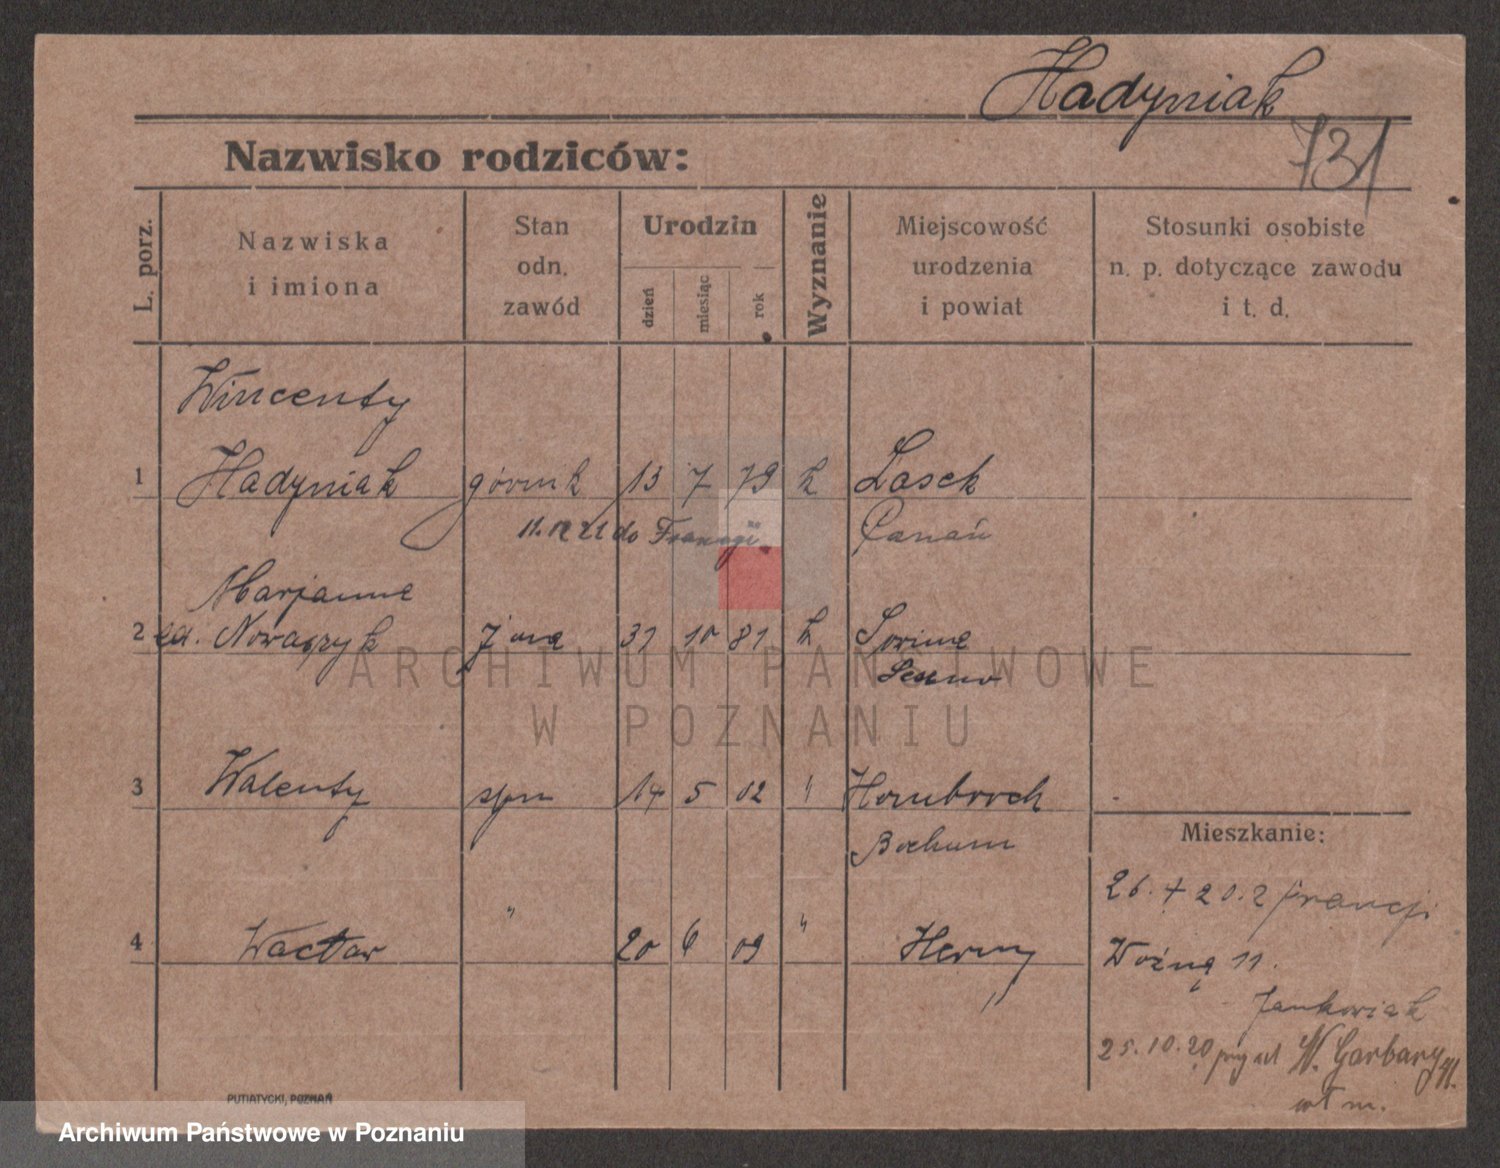 Hadyniak
731
Nazwisko rodziców:
L. porz.
Nazwiska
i imiona
Stan
odn.
zawód
Urodzin
dzień
miesiąc
rok
Wyznanie
Miejscowość
urodzenia
i powiat
Stosunki osobiste
n. p. dotyczące zawodu
i t. d.
Wincenty
1 Hadyniak górnik 13 7 79 k Lasek
11.12 21 do Francji
Marjanna
2 Nowaczyk żona 31 10 81 k
3 Walenty syn 14 5 02 " Hombroch
Bochum
Mieszkanie:
26. 7 20. z Francji
4 Wacław " 20 6 09 " Herny
Woźna 11.
Jankowiak
25.10.20 W. Garbary 41.
ARCHIWUM PAŃSTWOWE
W POZNANIU
PUTIATYCKI, POZNAŃ
Archiwum Państwowe w Poznaniu